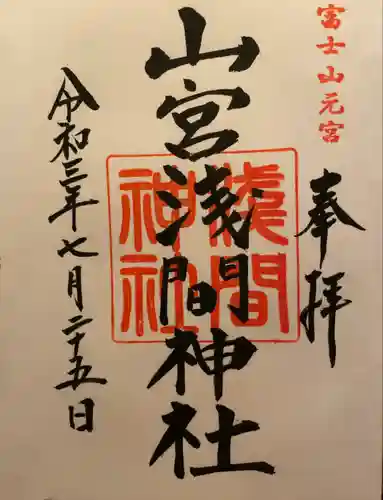 富士山元宮
奉拝
山宮浅間神社
浅間神社
令和三年七月二十五日